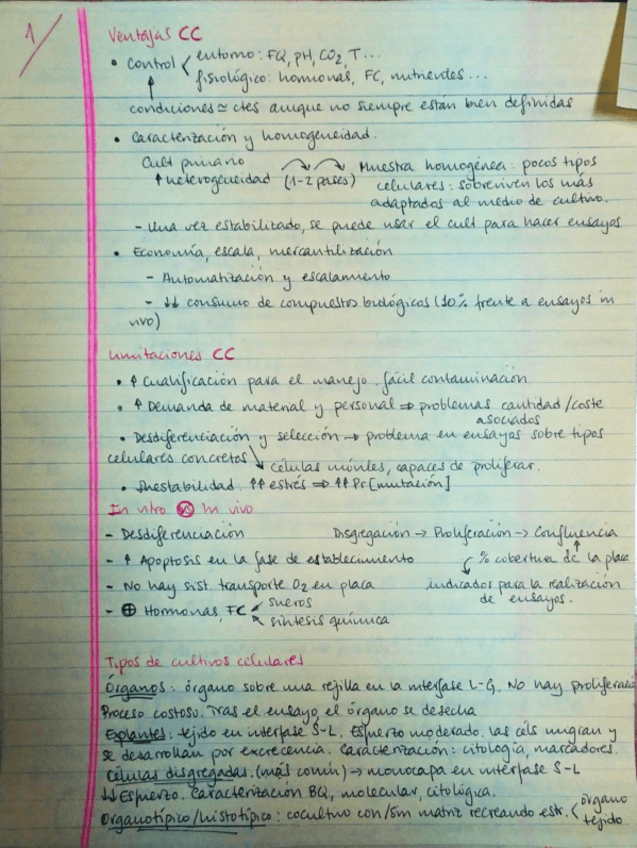 1/
Ventajas CC
• Control < entorno: FQ, pH, CO2, T...
fisiológico: hormonas, FC, nutrientes...
↑
condiciones ≃ ctes aunque no siempre están bien definidas
• Caracterización y homogeneidad.
Cult primario Muestra homogénea: pocos tipos
↑ heterogeneidad (1-2 pases) celulares: sobreviven los más
adaptados al medio de cultivo.
- Una vez estabilizado, se puede usar el cult para hacer ensayos
• Economía, escala, mercantilización
- Automatización y escalamiento
- ↓↓ consumo de compuestos biológicos (10% frente a ensayos in
vivo)
Limitaciones CC
• ↑ Cualificación para el manejo. fácil contaminación
• ↑ Demanda de material y personal ⇒ problemas cantidad/coste
asociados
• Desdiferenciación y selección → problema en ensayos sobre tipos
celulares concretos ↘ células móviles, capaces de proliferar.
• Inestabilidad. ↑↑ estrés ⇒ ↑↑ Pr[mutación]
In vitro VS In vivo
- Desdiferenciación Disgregación → Proliferación → Confluencia
- ↑ Apoptosis en la fase de establecimiento % cobertura de la placa
- No hay sist. transporte O2 en placa indicados para la realización
de ensayos.
- ⊕ Hormonas, FC < sueros
síntesis química
Tipos de cultivos celulares
Órganos: órgano sobre una rejilla en la interfase L-G. No hay proliferació
Proceso costoso. Tras el ensayo el órgano se desecha
Explantes: tejido en interfase S-L. Esfuerzo moderado. las céls migran y
se desarrollan por excrecencia. Caracterización: citología, marcadores.
Células disgregadas. (más común) → monocapa en interfase S-L
↓↓ Esfuerzo. Caracterización BQ, molecular, citológica.
Organotípico/histotípico: cocultivo con/sin matriz recreando estr. < órgano
tejido